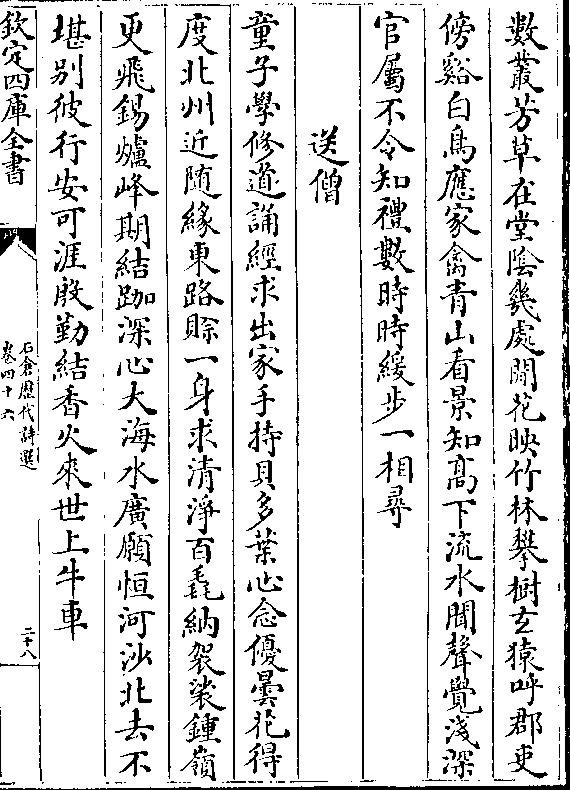 數叢芳草在堂陰幾處閒花映竹林攀樹玄猿呼郡吏
傍谿白鳥應家禽青山看景知高下流水聞聲覺淺深
官屬不令知禮數時時緩步一相尋
送僧
童子學修道誦經求出家手持貝多葉心念優曇花得
度北州近随緣東路賖一身求清淨百毳納袈裟鍾嶺
更飛錫爐峰期結跏深心大海水廣願恒河沙此去不
堪别彼行安可涯殷勤結香火來世上牛車
欽定四庫全書
石倉歴代詩選
卷四十六
二十八